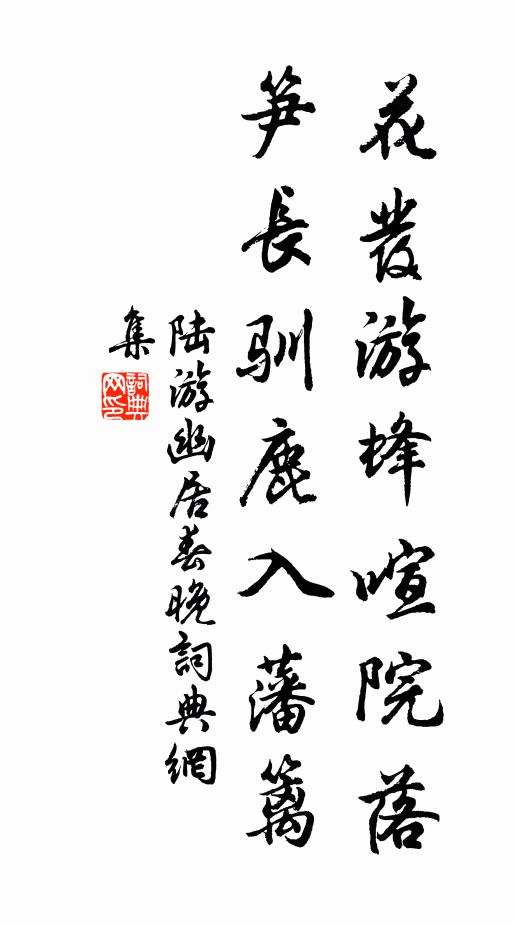 花發游蜂喧院落
笋長馴鹿入藩籬
陆游幽居春晚詞典網
集
詞典
网印